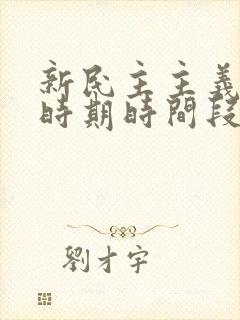 新民主主義
時期時間段
劉才宇